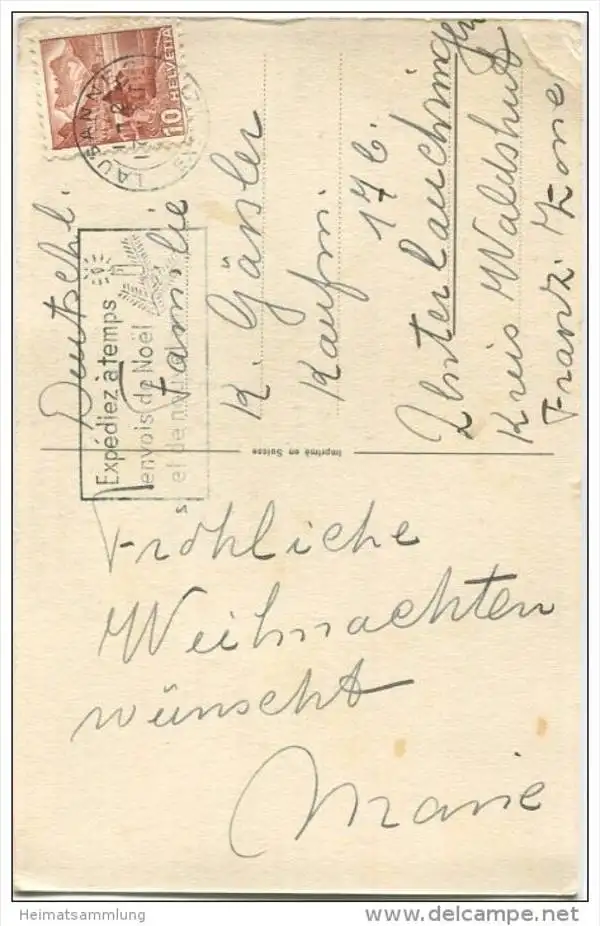 HELVETIA
10
LAUSANNE
Expédiez à temps
envois de Noël
et de
Deutschl.
Familie
K. Gänsler
Kaufm.
176.
Unterlauchringen
Kreis Waldshut
Franz. Zone
Imprimé en Suisse
Fröhliche
Weihnachten
wünscht
Marie
Heimatsammlung
www.delcampe.net